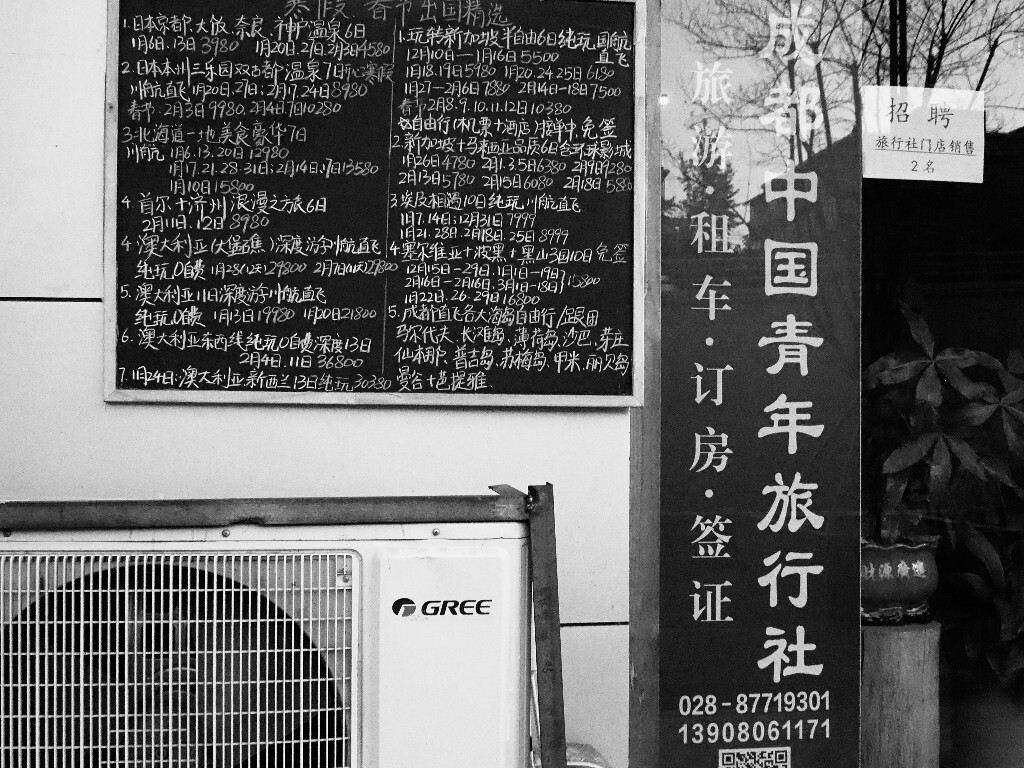 寒假 春节出国精选
1.日本京都、大阪、奈良、神户温泉6日
1月6日.13日3980 1月20日.27日.2月3日4580
2.日本本州三乐园双古都温泉7日
川航直飞1月20日.27日.2月17.24日8980
春节:2月3日9980.2月4日.7日10280
3.北海道一地美食豪华7日
川航 1月6.13.20日12980
1月17.21.28.31日;2月14日.17日13580
1月10日15800
4 首尔+济州 浪漫之旅6日
2月11日.12日8980
4.澳大利亚(大堡礁)深度游川航直飞
纯玩0自费 1月28(12天)29800 2月7日(11天)29800
5.澳大利亚11日深度游川航直飞
纯玩0自费 1月13日19980 1月20日21800
6.澳大利亚东西线纯玩0自费深度13日
2月4日.11日36800
7.1月24日:澳大利亚新西兰13日纯玩30380
1.玩转新加坡半自由6日纯玩国航直飞
12月10日—1月16日5500
1月18.19日5980 1月20.24.25日6180
1月27—2月6日7880 2月14日—18日7500
春节2月8.9.10.11.12日10380
自由行(机票+酒店)接单中,免签
2.新加坡+马来西亚品质6日含环球影城
1月26日4780 2月1.3.5日6380
2月13日5780 2月15日6080 2月18日5880
3.埃及相遇10日纯玩川航直飞
1月7.14日;12月31日7999
1月21.28日.2月18日.25日8999
4.塞尔维亚+波黑+黑山3国10日免签
12月15日—29日.1月1日—19日
2月16日—2月16日.3月1日—18日 15800
1月22日.26.29日16800
5.成都直飞各大海岛自由行/组民团
马尔代夫、长滩岛、薄荷岛、沙巴、芽庄
仙本那、普吉岛、苏梅岛、甲米、丽贝岛
曼谷+芭提雅.
GREE
旅游·租车·订房·签证
成都中国青年旅行社
028-87719301
13908061171
招聘
旅行社门店销售
2名
财源广进